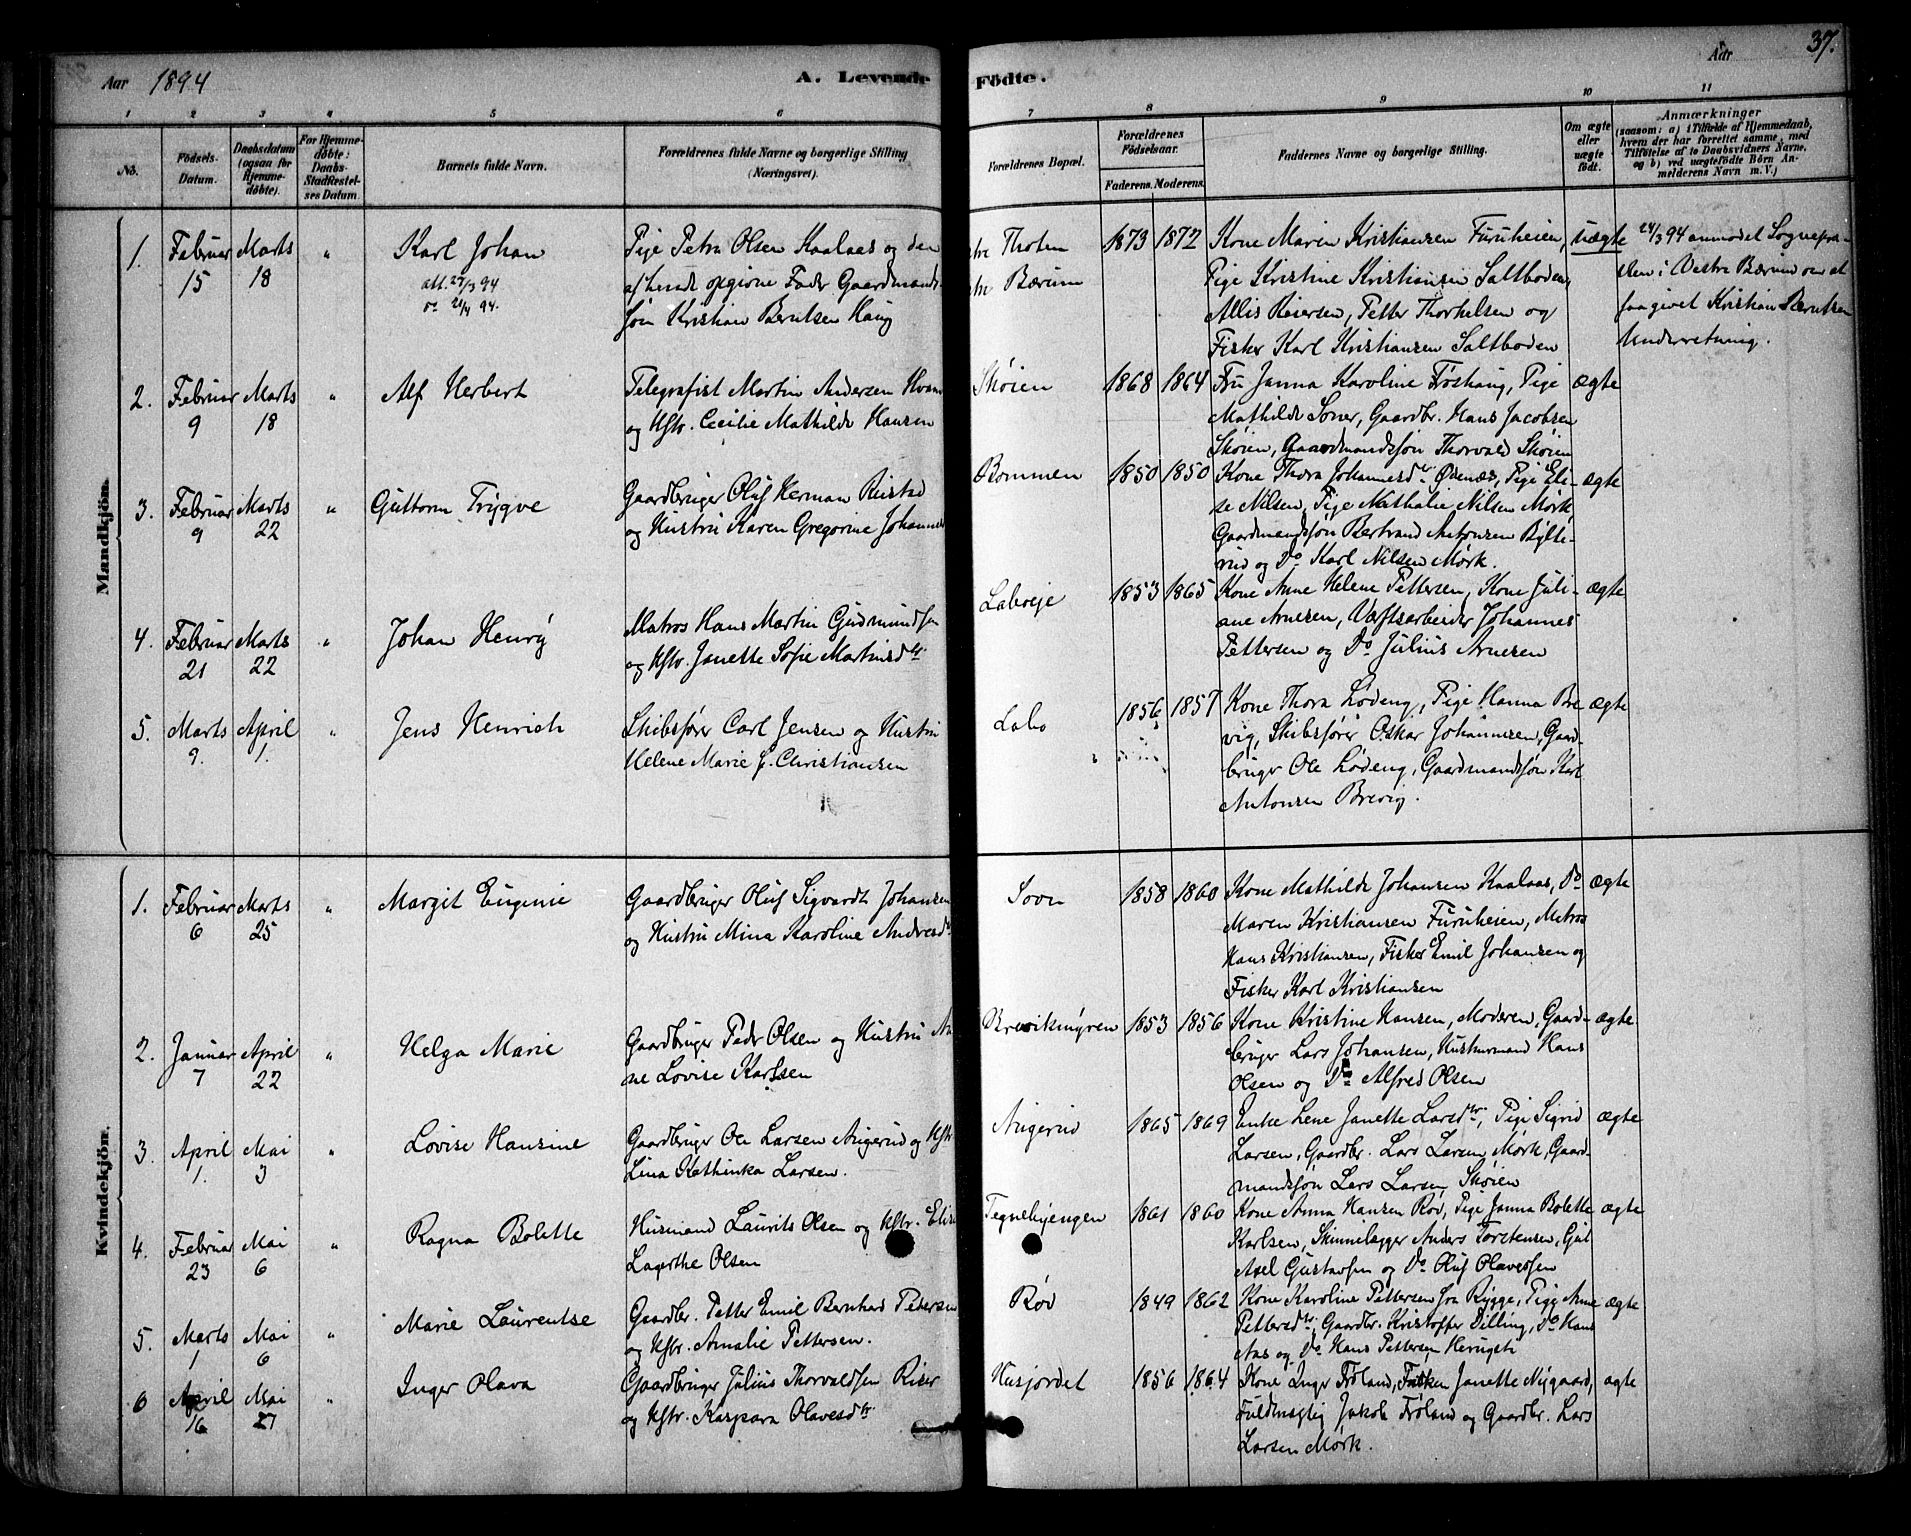 Aar 1894
A. Levende Födte.
Aar
37.
1 2 3 4 5 6 7 8 9 10 11
No.
Födsels-
Datum.
Daabsdatum
(ogsaa for
Hjemme-
döbte).
For Hjemme-
döbte:
Daabs-
Stadfæstel-
ses Datum.
Barnets fulde Navn.
Forældrenes fulde Navne og borgerlige Stilling
(Næringsvei).
Forældrenes Bopæl.
Forældrenes
Födselsaar.
Faderens. Moderens.
Faddernes Navne og borgerlige Stilling.
Om ægte
eller
uægte
födt.
Anmærkninger
(saasom: a) i Tilfælde af Hjemmedaab,
hvem der har forrettet samme, med
Tilföielse af to Daabsvidners Navne,
og b) ved uægtefödte Börn An-
melderens Navn m. V.)
Mandkjön.
1. Februar 15
Marts 18
"
Karl Johan
att. 27/3 94
do 21/4 94.
Pige Petra Olsen Kaalaas og den
af hende opgivne Fader Gaardmands-
søn Kristian Berntsen Haug
Thoten
Bærum
1873 1872
Kone Maren Kristiansen Furuheien,
Pige Kristine Kristiansen Saltboden,
Allis Reiersen, Petter Thorkelsen og
Fisker Karl Kristiansen Saltboden
uægte
24/3 94 anmodet Sognepræ-
sten i Vestre Bærum om at
faa givet Kristian Berntsen
Underretning.
2. Februar 9
Marts 18
"
Alf Herbert
Telegrafist Martin Andersen Hvam
og Hstr. Cecilie Mathilde Hansen
Skøien
1868 1864
Fru Janna Karoline Frøshaug, Pige
Mathilde Soner, Gaardbr. Hans Jacobsen
Skøien, Gaardmandssøn Thorvald Skøien
ægte
3. Februar 9
Marts 22
"
Guttorm Trygve
Gaardbruger Oluf Herman Rustad
og Hustru Karen Gregorine Johannes
Bommen
1850 1850
Kone Thora Johannesdtr Ødenæs, Pige Eli-
se Nilsen, Pige Mathalie Nilsen Mørk,
Gaardmandssøn Bertrand Antonsen Bylte-
rud og Do Karl Nilsen Mørk.
ægte
4. Februar 21
Marts 22
"
Johan Henry
Matros Hans Martin Gudmundsen
og Hstr. Janette Sofie Martinsdtr
Laboeje
1853 1865
Kone Anne Helene Pettersen, Kone Juli-
ane Arnesen, Værftsarbeider Johannes
Pettersen og Do Julius Arnesen
ægte
5. Marts 9.
April 1.
"
Jens Henrich
Skibsfører Carl Jensen og Hustru
Helene Marie f. Christiansen
Labo
1856 1857
Kone Thora Lødeng, Pige Hanna Bre-
vig, Skibsfører Oskar Johannesen, Gaard-
bruger Ole Lødeng, Gaardmandssøn Karl
Antonsen Brevig.
ægte
Kvindekjön.
1. Februar 6
Marts 25
"
Margit Eugenie
Gaardbruger Oluf Sigvardt Johansen
og Hustru Mina Karoline Andersdtr
Sovn
1858 1860
Kone Mathilde Johansen Kaalaas, Do
Maren Kristiansen Furuheien, Matros
Hans Kristiansen, Fisker Emil Johansen og
Fisker Karl Kristiansen
ægte
2. Januar 7
April 22
"
Helga Marie
Gaardbruger Peder Olsen og Hustru An-
ne Lovise Karlsen
Brevikmyren
1853 1856
Kone Kristine Hansen, Moderen, Gaard-
bruger Lars Johansen, Husmand Hans
Olsen og Do Alfred Olsen
ægte.
3. April 1.
Mai 3
"
Lovise Hansine
Gaardbruger Ole Larsen Augerud og Hstr.
Lina Kathinka Larsen.
Augerud
1865 1869
Enke Lene Janette Larsdtr, Pige Sigrid
Larsen, Gaardbr. Lars Larsen Mørk, Gaard-
mandssøn Lars Larsen Skøien
ægte
4. Februar 23
Mai 6
"
Ragna Bolette
Husmand Laurits Olsen og Hstr. Elise
Lagerthe Olsen
Tegnebyengen
1861 1860
Kone Anna Hansen Røv, Pige Janna Bolette
Karlsen, Skinnelægger Anders Torstensen, Gul
Axel Gustavsen og Do Oluf Olavessen
ægte
5. Marts 1
Mai 6
"
Marie Laurentse
Gaardbr. Petter Emil Bernhard Petersen
og Hstr. Amalie Pettersen.
Røv
1849 1862
Kone Karoline Pettersen fra Rygge, Pige Anne
Pettersdtr, Gaardbr. Kristoffer Dilling, Do Hans
Aas og Do Hans Pettersen
ægte
6 April 16
Mai 27
"
Inger Olava
Gaardbruger Julius Thorvaldsen Riser
og Hstr. Kaspara Olavesdtr
Husjordet
1856 1864
Kone Inger Frøland, Frøken Janette Nygaard,
Fuldmægtig Jakob Frøland og Gaardbr. Lars
Larsen Mørk.
ægte